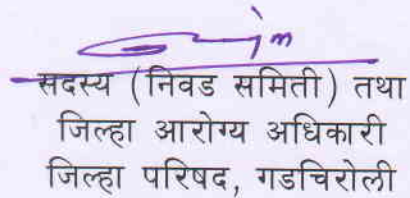 सदस्य (निवड समिती) तथा
जिल्हा आरोग्य अधिकारी
जिल्हा परिषद, गडचिरोली